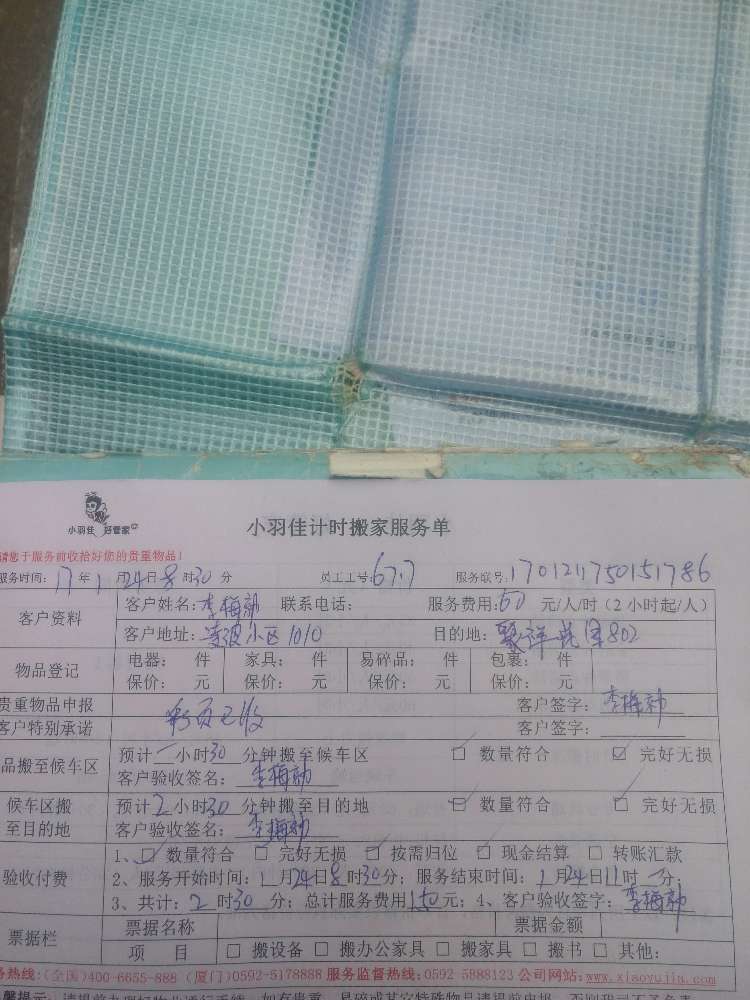 小羽佳 好管家
小羽佳计时搬家服务单
请您于服务前收拾好您的贵重物品！
服务时间：17年1月24日8时30分 员工工号：677 服务联号：170121175015786
客户资料
客户姓名：李梅 联系电话： 服务费用：60元/人/时（2小时起/人）
客户地址：凌波小区1010 目的地：802
物品登记
电器： 件 家具： 件 易碎品： 件 包裹： 件
保价： 元 保价： 元 保价： 元 保价： 元
贵重物品申报 客户签字：李梅
客户特别承诺 已收 客户签字：
品搬至候车区
预计一小时30分钟搬至候车区 ☐ 数量符合 ☑ 完好无损
客户验收签名：李梅
候车区搬至目的地
预计2小时30分钟搬至目的地 ☐ 数量符合 ☐ 完好无损
客户验收签名：李梅
验收付费
1、☐ 数量符合 ☐ 完好无损 ☐ 按需归位 ☐ 现金结算 ☐ 转账汇款
2、服务开始时间：1月24日8时30分；服务结束时间：1月24日11时 分；
3、共计：2时30分；总计服务费用150元；4、客户验收签字：李梅
票据栏
票据名称 票据金额
项 目 ☐ 搬设备 ☐ 搬办公家具 ☐ 搬家具 ☐ 搬书 ☐ 其他：
务热线：(全国)400-6655-888 (厦门)0592-5178888 服务监督热线：0592-5888123 公司网站：www.xiaoyujia.com